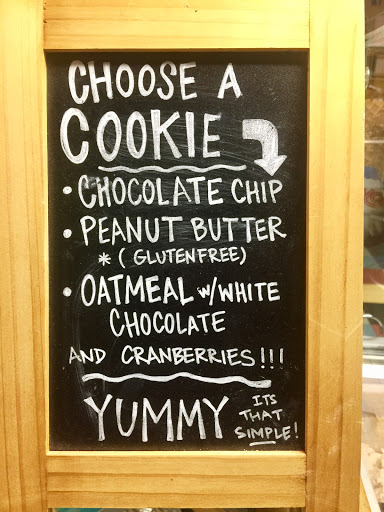 CHOOSE A
COOKIE
• CHOCOLATE CHIP
• PEANUT BUTTER
* (GLUTENFREE)
• OATMEAL W/WHITE
CHOCOLATE
AND CRANBERRIES!!!
YUMMY
ITS
THAT
SIMPLE!